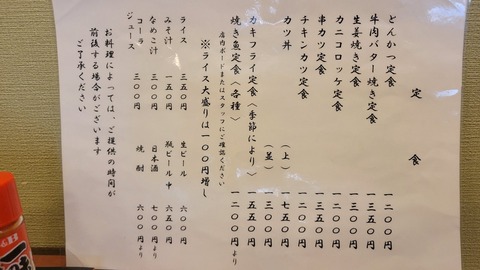 定食
とんかつ定食 一二〇〇円
牛肉バター焼き定食 一三五〇円
生姜焼き定食 一三〇〇円
カニコロッケ定食 一二〇〇円
串カツ定食 一三五〇円
チキンカツ定食 一二〇〇円
カツ丼 (上) 一七五〇円
(並) 一三〇〇円
カキフライ定食〈季節により〉 一五五〇円
焼き魚定食〈各種〉 一二〇〇円より
店内ボードまたはスタッフにご確認ください
※ライス大盛りは一〇〇円増し
ライス 三五〇円 生ビール 六〇〇円
みそ汁 一五〇円 瓶ビール中 六五〇円
なめこ汁 三〇〇円 日本酒 七〇〇円より
コーラ 三〇〇円 焼酎 六〇〇円より
ジュース
お料理によっては、ご提供の時間が
前後する場合がございます
ご了承ください
一味